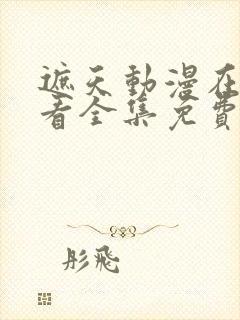 遮天動漫在
看全集免費
彤飛